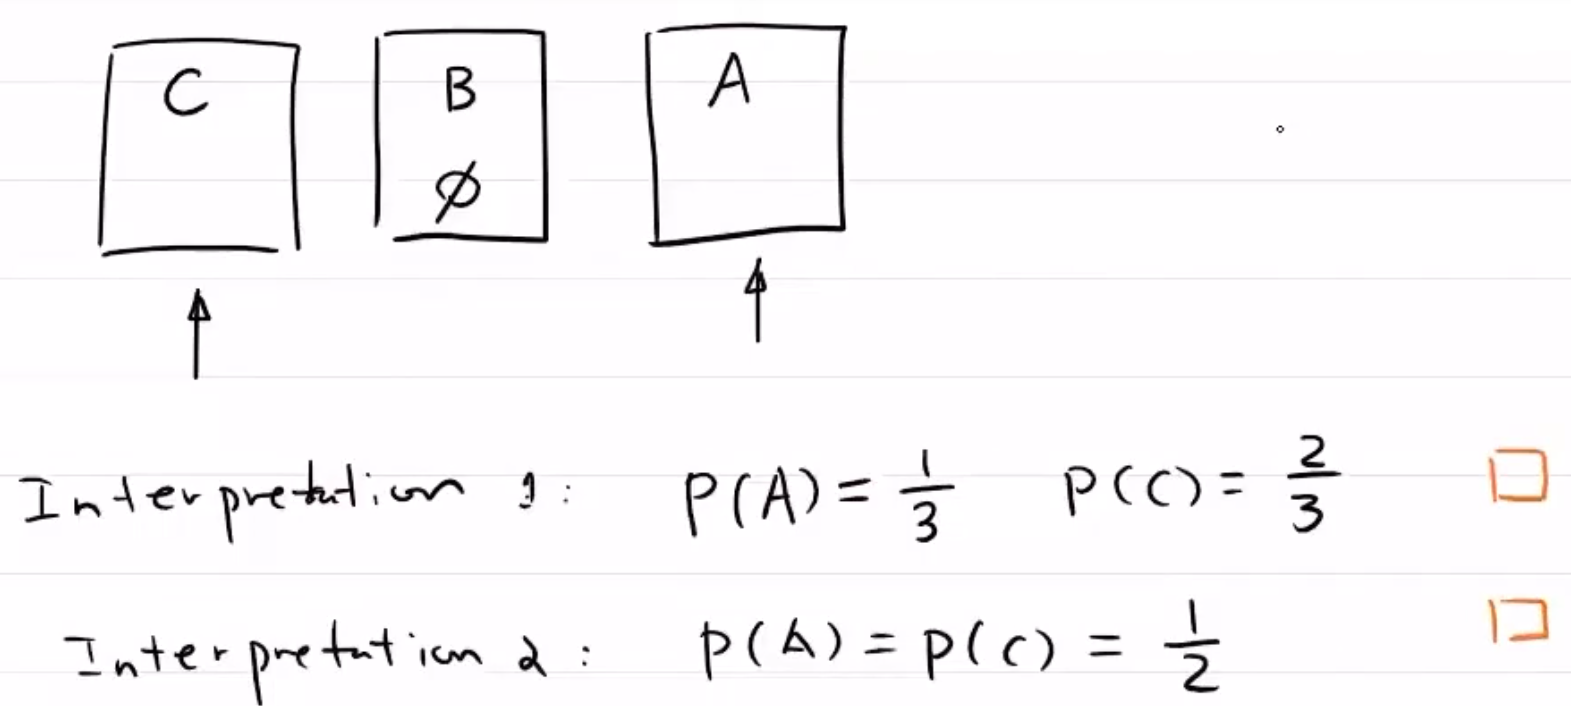 C B A
∅
Interpretation 1: P(A) = 1/3 P(C) = 2/3
Interpretation 2: P(A) = P(C) = 1/2